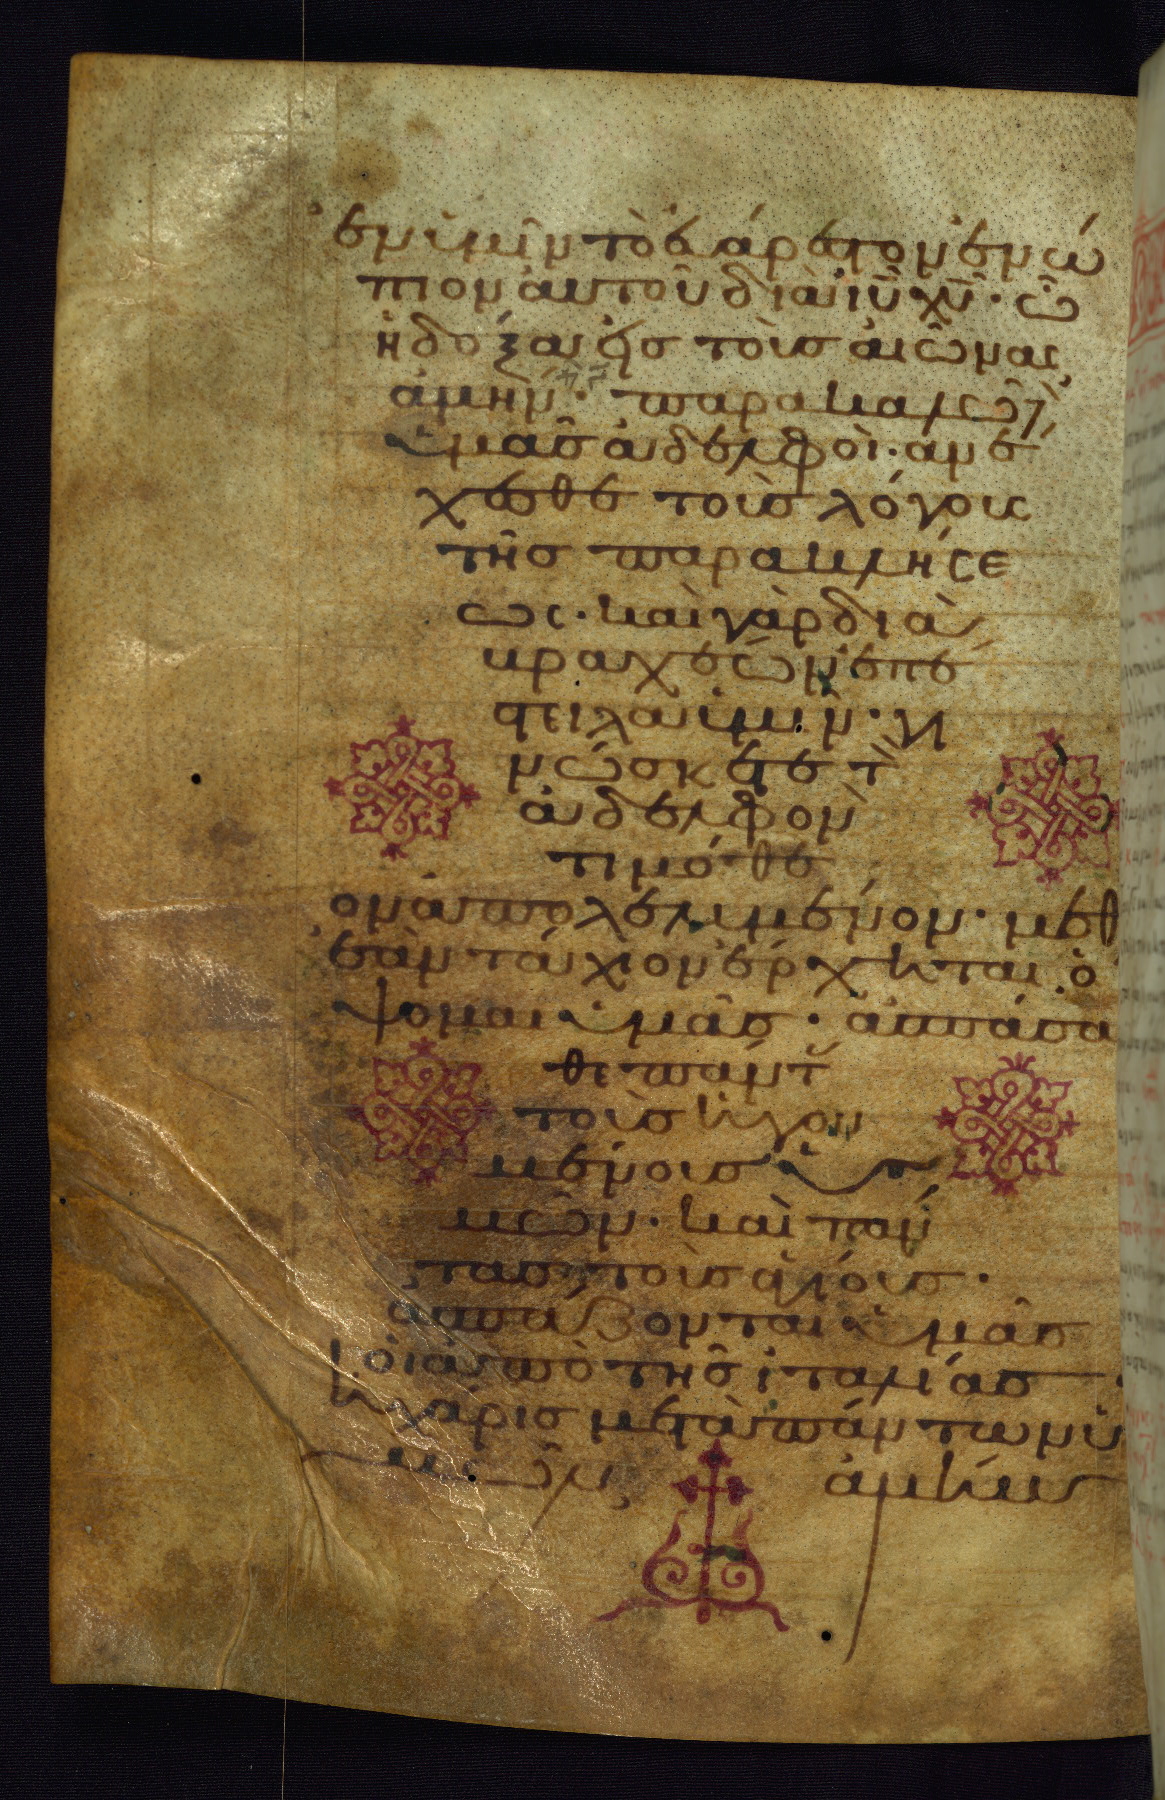 ἐν ὑμῖν τὸ εὐάρεστον ἐνώ
πιον αὐτοῦ διὰ ἰῦ χῦ · ὧ
ἡ δόξα εἰς τοὺς αἰῶνας
ἀμήν · παρακαλῶ
ὑμᾶς ἀδελφοὶ · ανε
χεσθε τοῦ λόγου
τῆς παρακλήσε
ως · καὶ γὰρ διὰ
βραχεών ἐπέ
στειλα ὑμῖν · γι
νώσκετε τὸν
ἀδελφὸν
τιμόθε
ον ἀπολελυμένον · μεθ
ἐὰν τάχιον ἔρχηται ὄ
ψομαι ὑμᾶς · ἀσπάσα
θε πάντ
τοὺς ἡγου
μένοις ὑ
μῶν · καὶ πάν
τας τοὺς ἁγίους ·
ἀσπάζονται ὑμᾶς
οἱ ἀπὸ τῆς ἰταλίας ·
ἡ χάρις μετὰ πάντων ὑ
μῶν ἀμήν